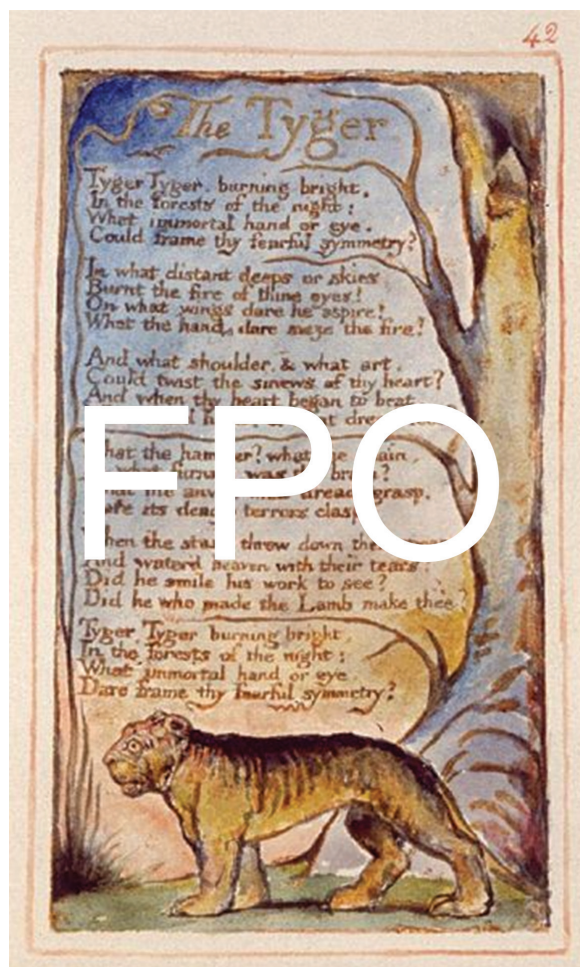 42
The Tyger
Tyger Tyger. burning bright,
In the forests of the night:
What immortal hand or eye.
Could frame thy fearful symmetry?
In what distant deeps or skies
Burnt the fire of thine eyes!
On what wings dare he aspire?
What the hand, dare sieze the fire?
And what shoulder, & what art,
Could twist the sinews of thy heart?
And when thy heart began to beat,
FPO
the
what
was
grasp.
its terrors
the down
And water'd heaven with their tears:
Did he smile his work to see?
Did he who made the Lamb make thee?
Tyger Tyger burning bright,
In the forests of the night:
What immortal hand or eye
Dare frame thy fearful symmetry?